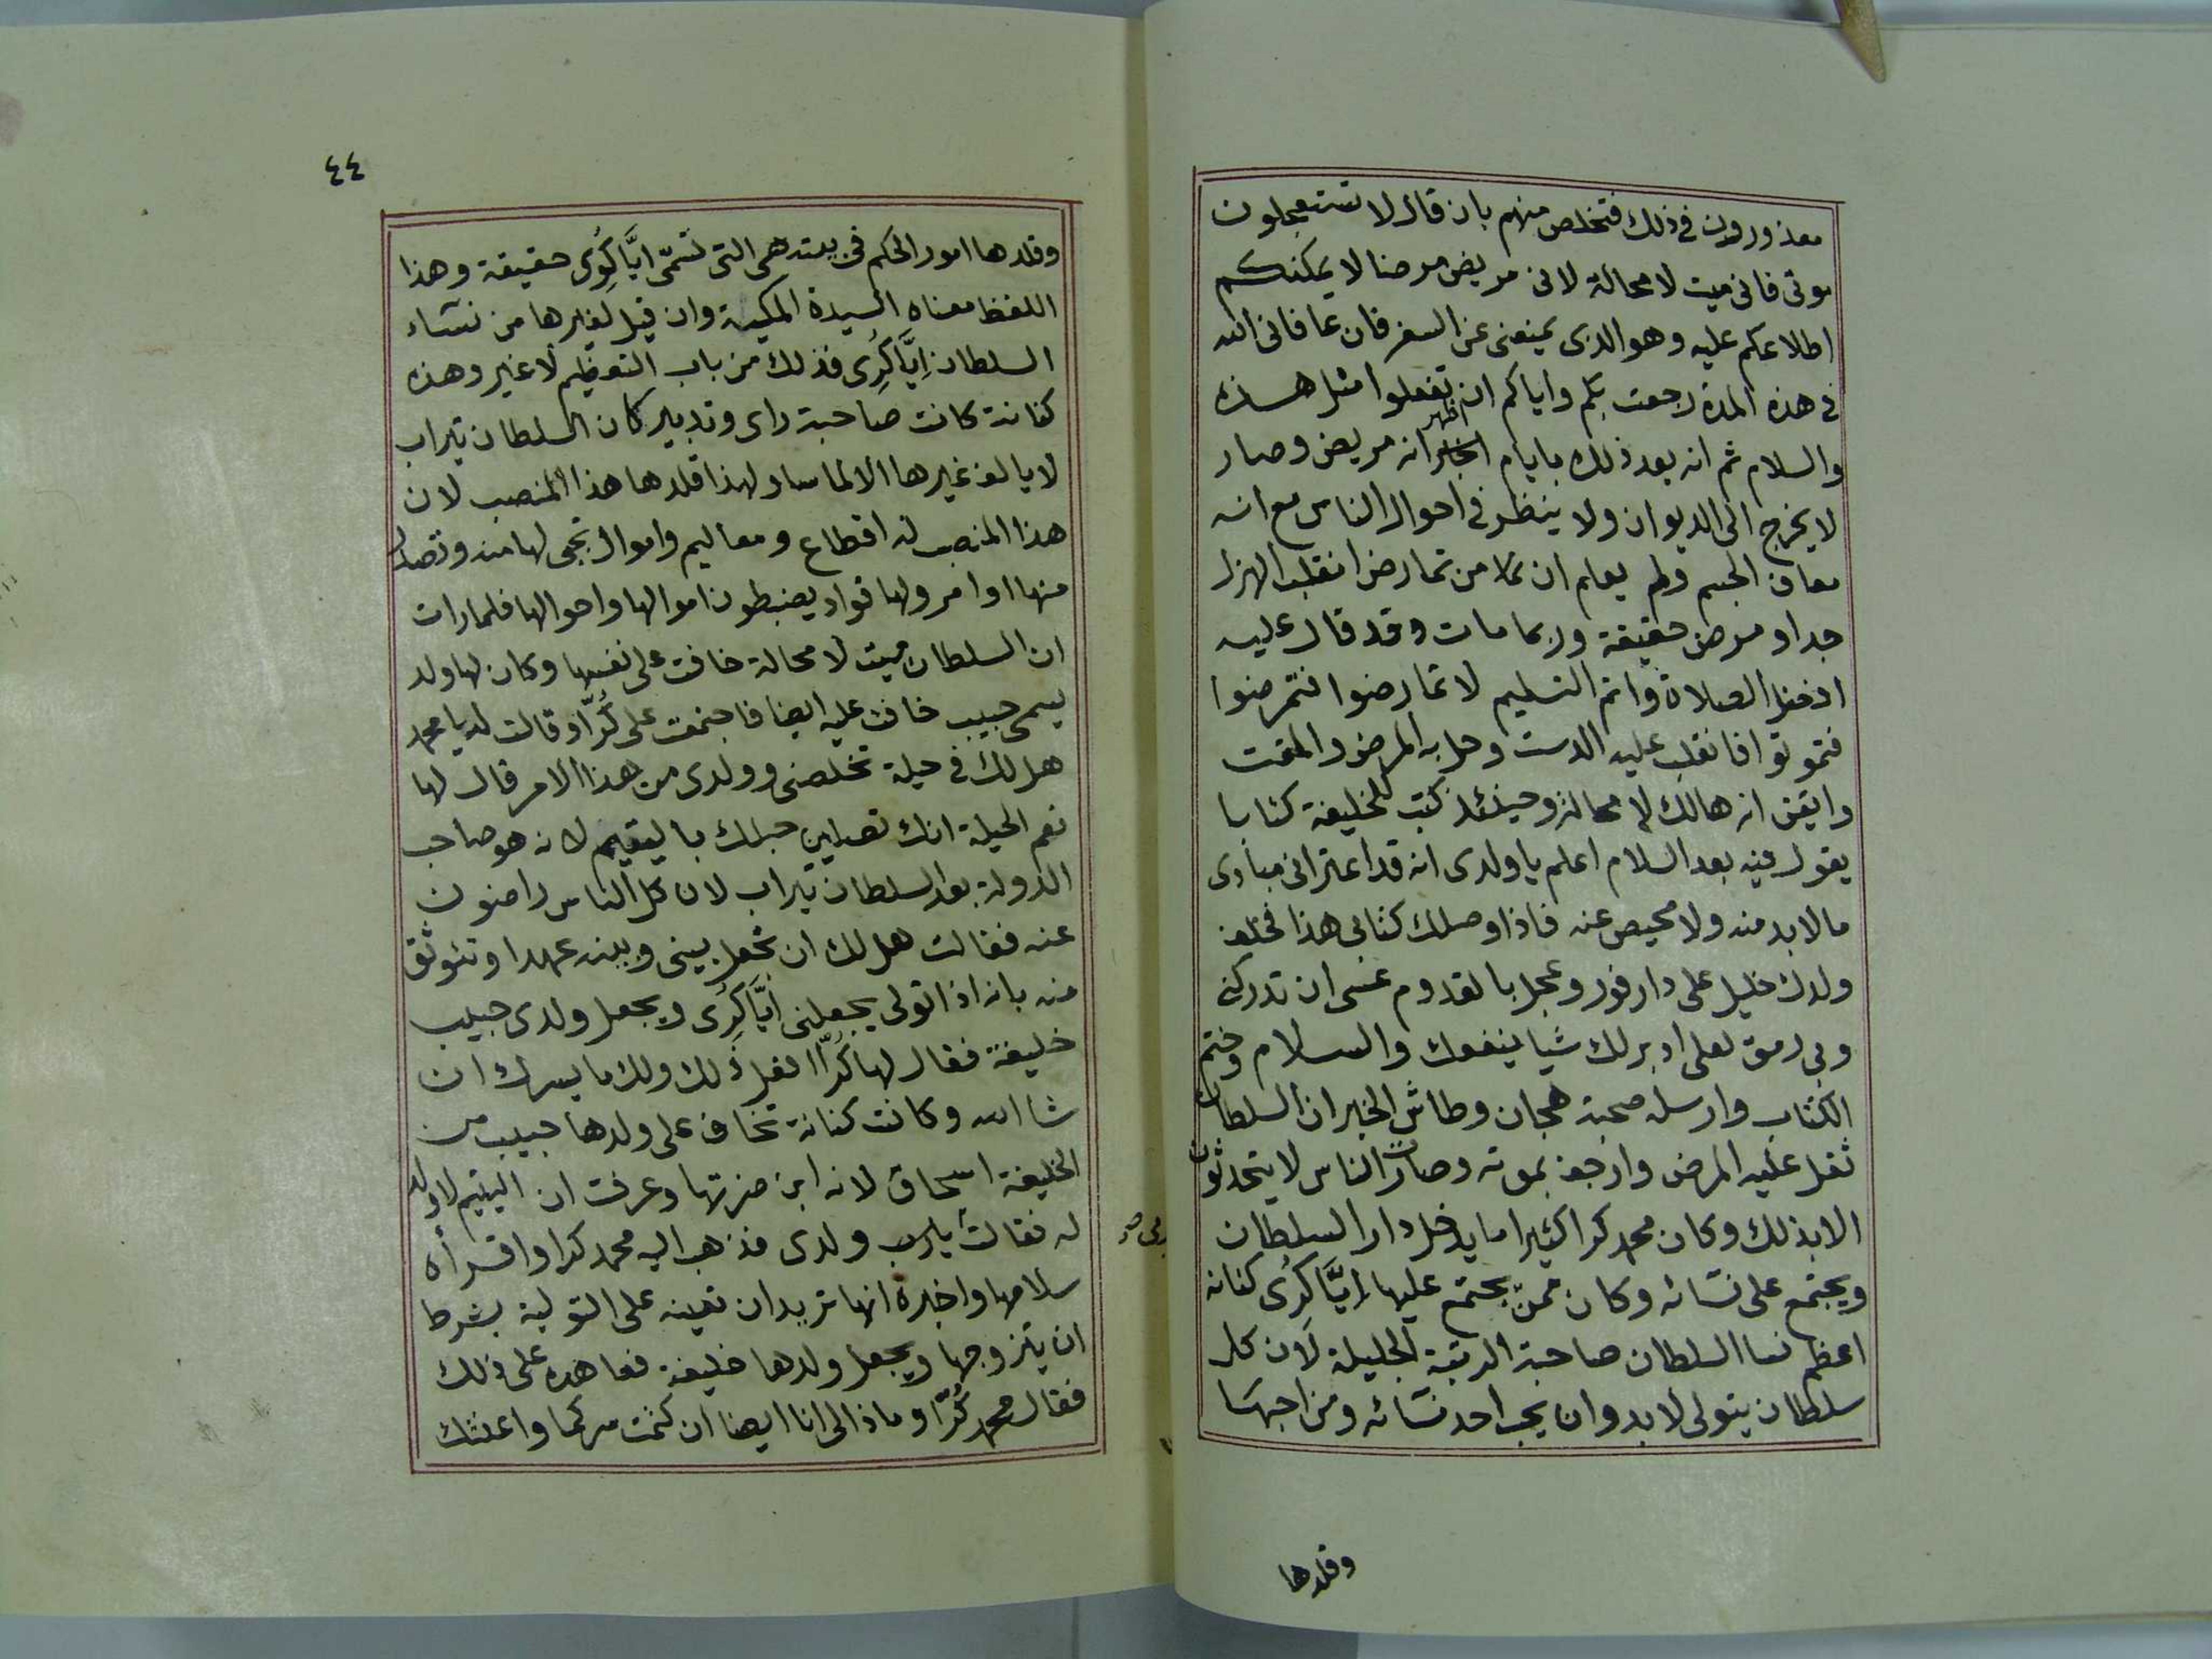 معذورون في ذلك فتخلص منهم بان قال لا تستعجلون
موتى فانى ميت لا محالة لانى مريض مرضا لا يمكنكم
اطلاعكم عليه وهو الدى يمنعنى عن السفر فان عافانى الله
في هذه المدة رجعت بكم واياكم ان تفعلوا مثل هذه
والسلام ثم انه بعد ذلك بايام اظهر انه مريض وصار
لا يخرج الى الديوان ولا ينظر في احوال الناس مع انه
معاف الجسم ولم يعلم ان كلا من تمارض انقلب الهزل
جدا ومرض حقيقة وربما مات وقد قال عليه
افضل الصلاة واتم التسليم لا تمارضوا فتمرضوا
فتموتوا فانقلب عليه الدست وحل به المرض والمقت
وايقن انه هالك لا محالة وحينئذ كتب للخليفة كتابا
يقول فيه بعد السلام اعلم يا ولدى انه قد اعترانى مبادى
مالا بد منه ولا محيص عنه فاذا وصلك كتابى هذا فخلف
ولدك خليل على دارفور وعجل بالقدوم عسى ان تدركنى
وبى رمق لعلى ادبر لك شيا ينفعك والسلام وختم
الكتاب وارسله صحبة هجان وطاش الخبر ان السلطان
ثقل عليه المرض وارجف بموته وصارت الناس لا يتحدثون
الا بذلك وكان محمد كرا كثيرا ما يدخل دار السلطان
ويجتمع على نسائه وكان ممن يجتمع عليها إيّاكُرِى كنانه
اعظم نسا السلطان صاحبة الرتبة الجليلة لان كل
سلطان يتولى لا بد وان يحب احد نسائه ومن احبها
وقلدها
٤٤
وقلدها امور الحكم في بيته هى التى تسمّى ايّاكُرِى حقيقة وهذا
اللفظ معناه السيدة الملكية وان قيل لغيرها من نساء
السلطان إيّاكُرِى فذلك من باب التعظيم لا غير وهذه
كنانة كانت صاحبة راى وتدبير كان السلطان تيراب
لا يالف غيرها الا لماما ولهذا قلدها هذا المنصب لان
هذا المنصب له اقطاع ومعاليم واموال تجى لها منه وتصدر
منها اوامر ولها قواد يضبطون اموالها واحوالها فلما رات
ان السلطان ميت لا محالة خافت على نفسها وكان لها ولد
يسمى حبيب خافت عليه ايضا فاجتمعت على كُرّا وقالت له يا محمد
هل لك في حيلة تخلصنى وولدى من هذا الامر قال لها
نعم الحيلة انك تصلين حبلك باليتيم لانه هو صاحب
الدولة بعد السلطان تيراب لان كل الناس راضون
عنه فقالت هل لك ان تجعل بينى وبينه عهدا وتتوثق
منه بانه اذا تولى يجعلنى إيّاكُرِى ويجعل ولدى حبيب
خليفة فقال لها كُرّا افعل ذلك ولك ما يسرك ان
شا الله وكانت كنانة تخاف على ولدها حبيب من
الخليفة اسحاق لانه ابن ضرتها وعرفت ان اليتيم لا ولد
له فقالت ولدى فذهب اليه محمد كرا واقراه
سلامها واخبره انها تريد ان تعينه على التولية بشرط
ان يتزوجها ويجعل ولدها خليفة فعاهده على ذلك
فقال محمد كُرّا وماذا لى انا ايضا ان كتمت سركما واعنتك